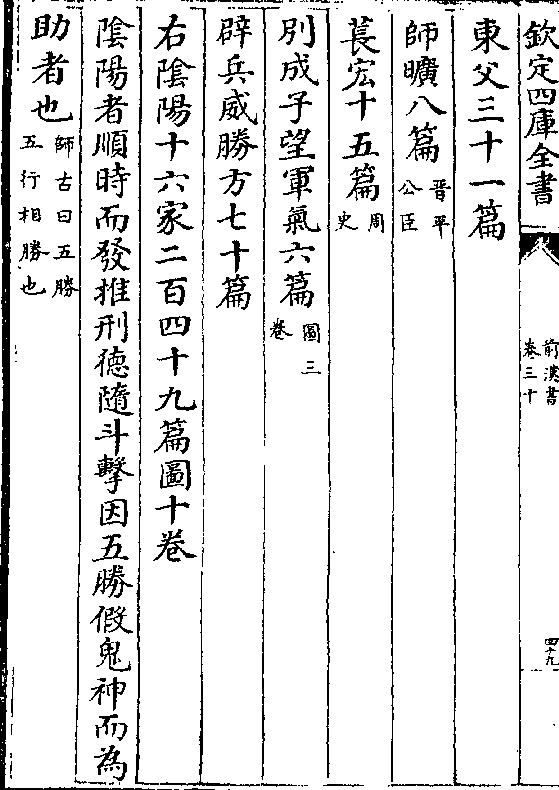 欽定四庫全書
前漢書
卷三十
四十九
東父三十一篇
師曠八篇 晋平公臣
萇宏十五篇 周史
別成子望軍氣六篇 圖三卷
辟兵威勝方七十篇
右隂陽十六家二百四十九篇圖十卷
隂陽者順時而發推刑德隨斗擊因五勝假鬼神而為
助者也 師古曰五勝五行相勝也